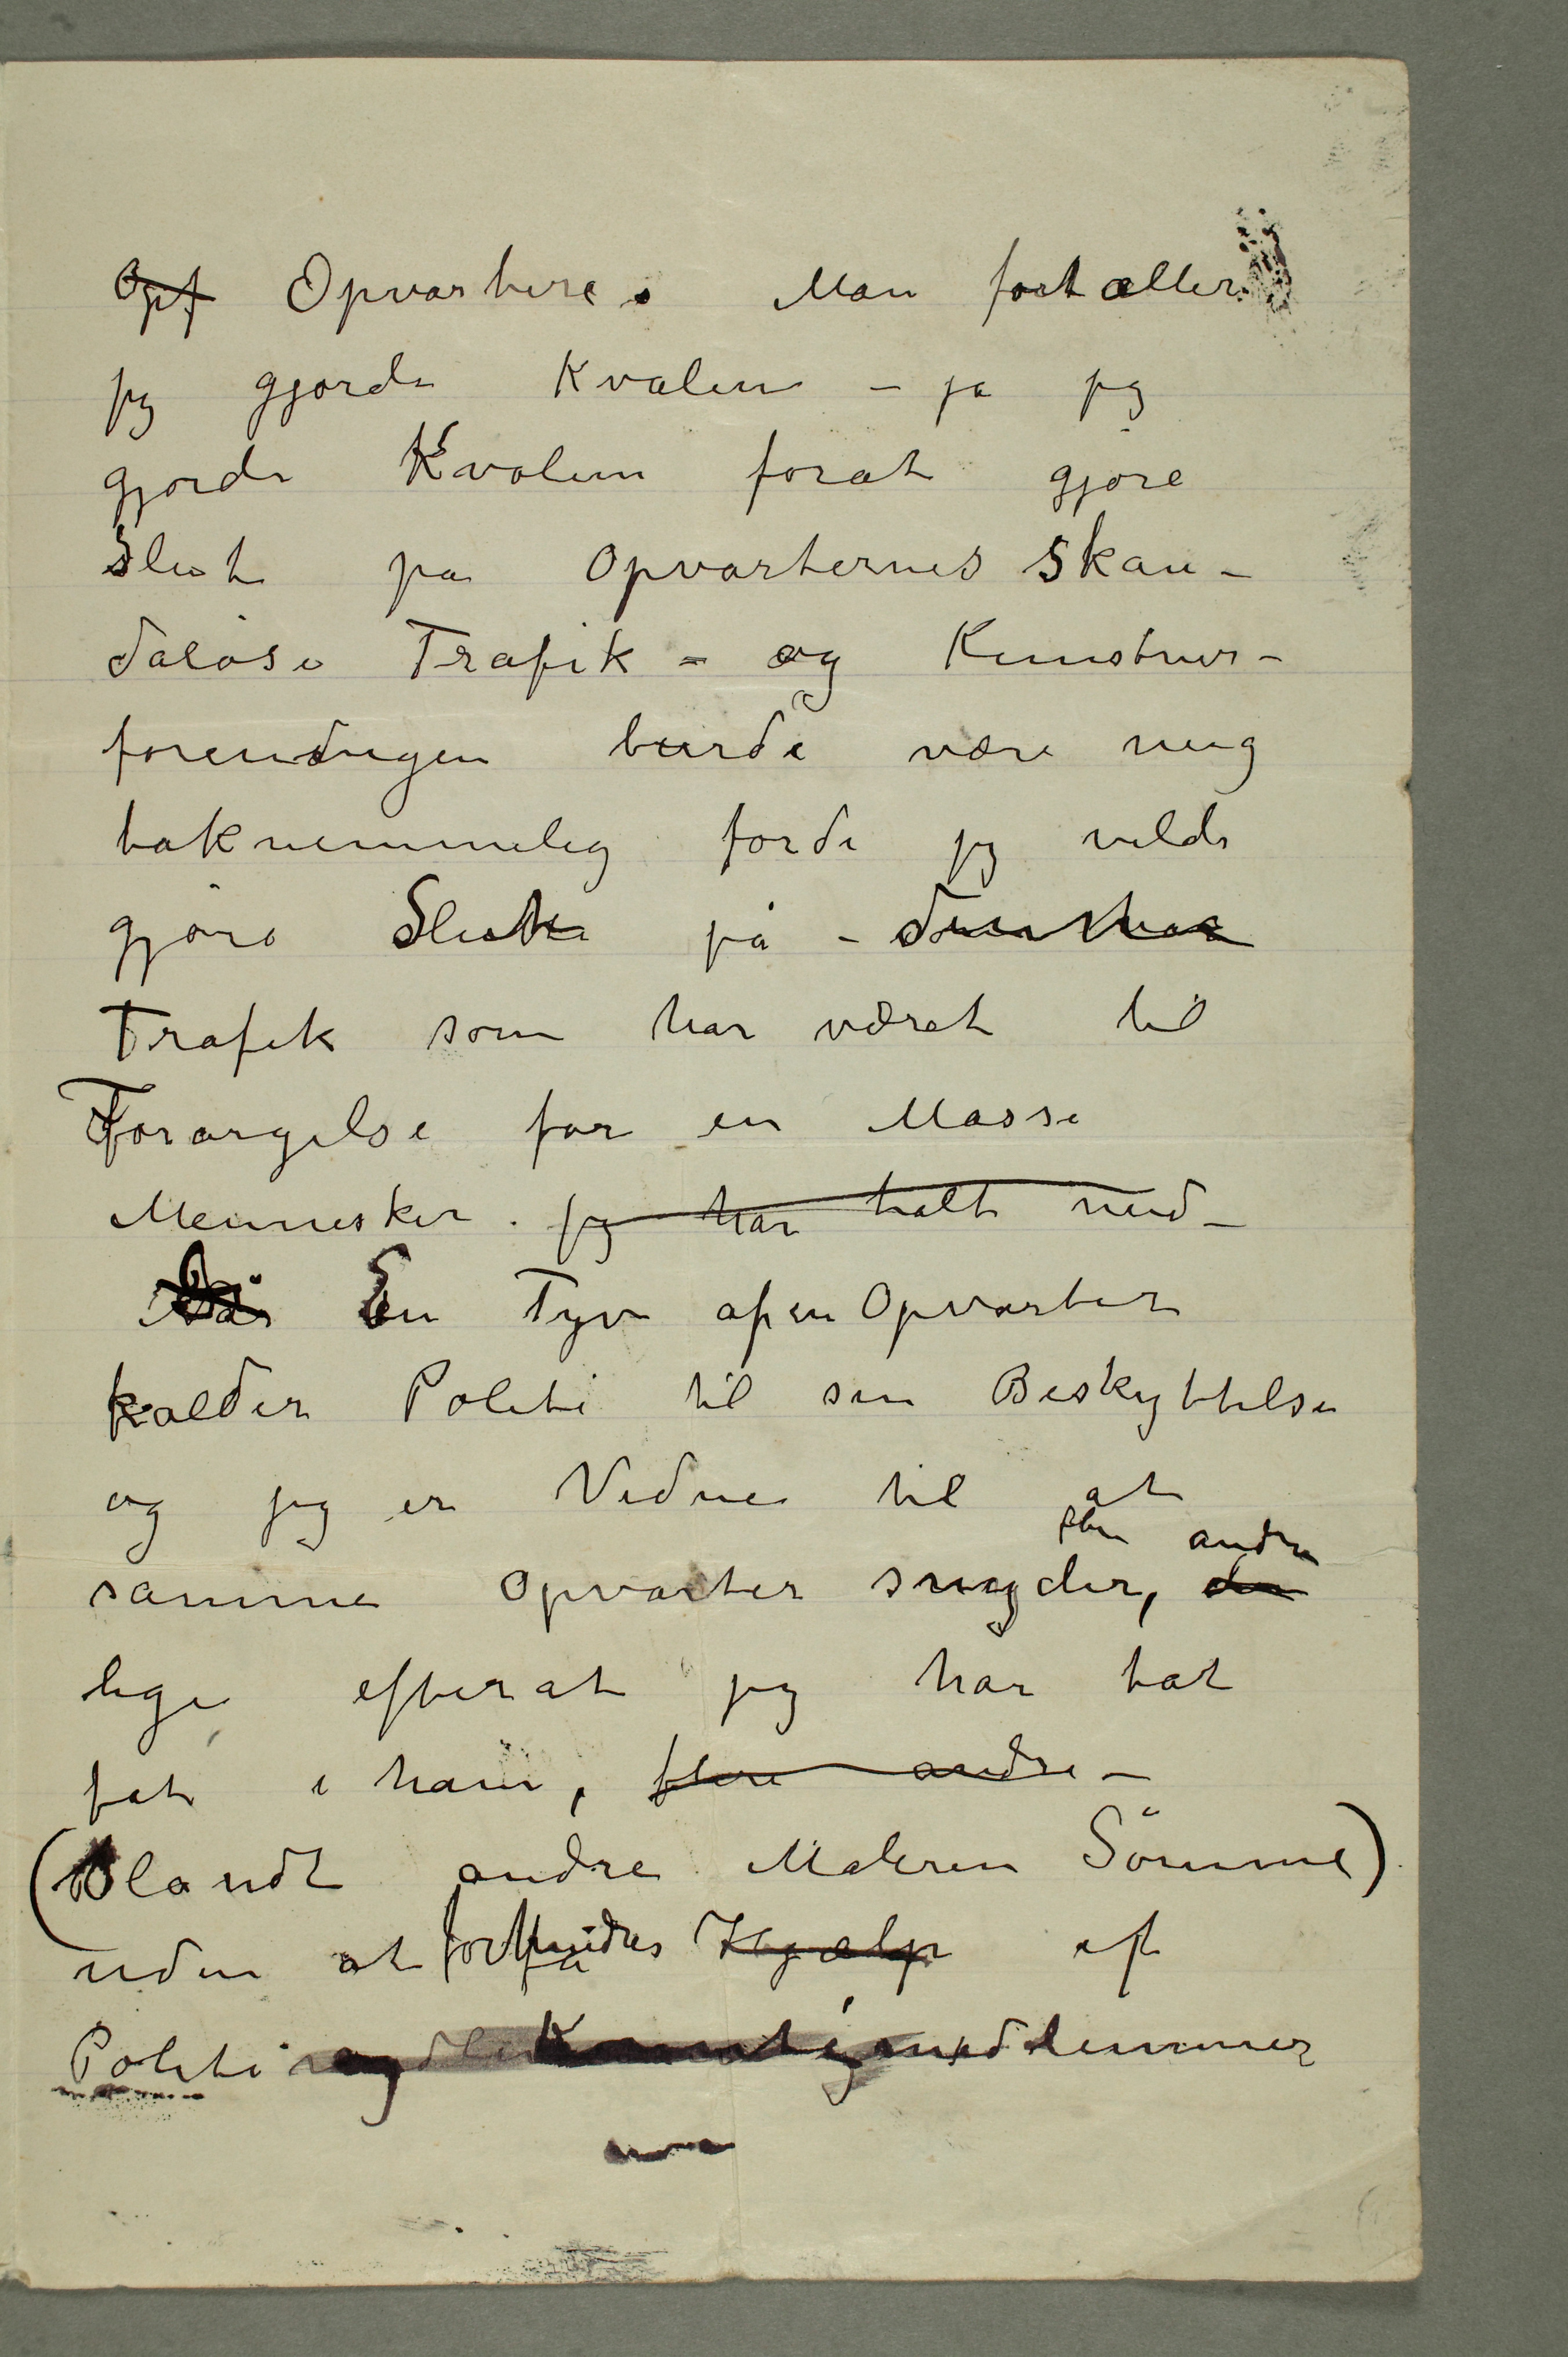 Opf Opvartere. Man fortæller
jeg gjorde Kvalen – ja jeg
gjorde Kvalen forat gjøre
Slut på Opvarternes Skan-
daløse Trafik – og Kunstner-
foreningen burde være meg
taknemmelig fordi jeg vilde
gjøre Slut på – denne
Trafik som har været til
Forargelse for en Masse
Mennesker. jeg har talt med –
Når En Tyv af en Opvarter
kalder Politi til sin Beskyttelse
og jeg er Vidne til at
samme Opvarter snyder, den
flere andre
lige efterat jeg har tat
fat i ham, flere andre –
(Blandt andre Maleren Sömme)
uden at forhindres Hjælp af
Politi medlemmer